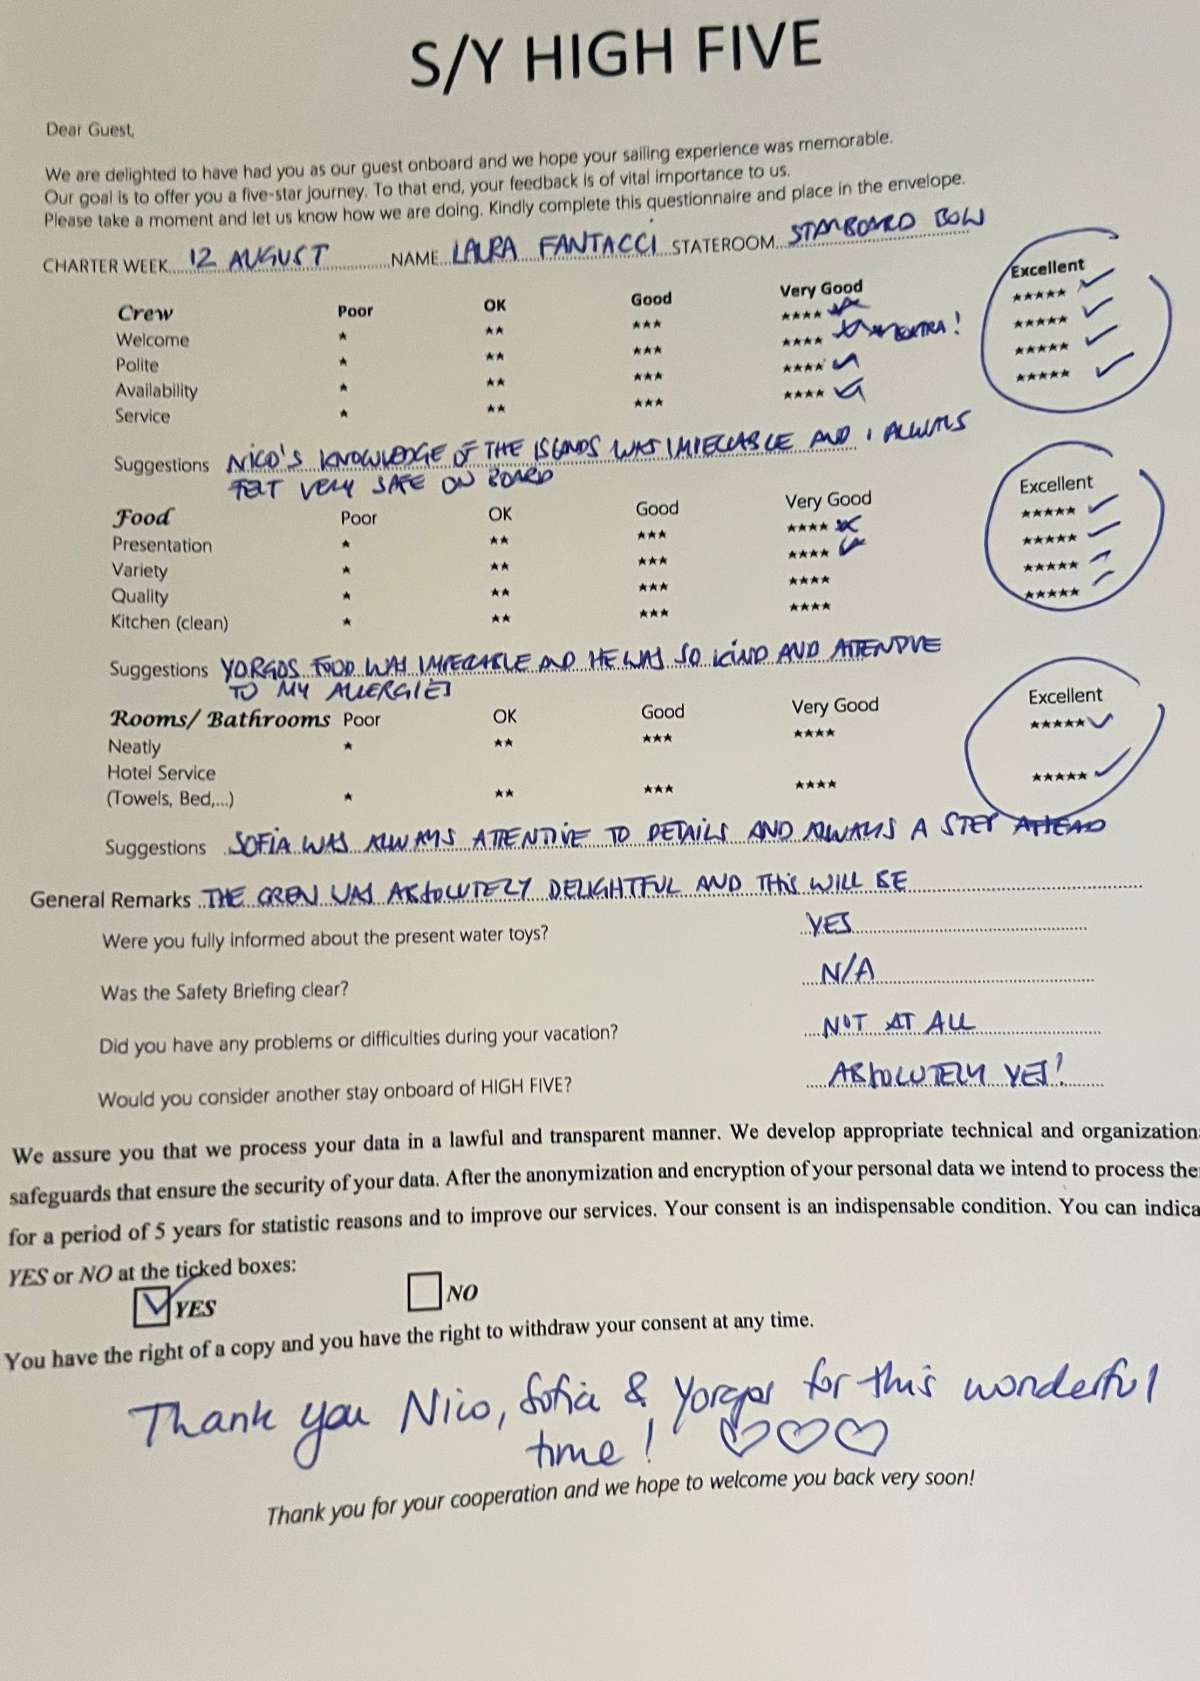 S/Y HIGH FIVE
Dear Guest,
We are delighted to have had you as our guest onboard and we hope your sailing experience was memorable.
Our goal is to offer you a five-star journey. To that end, your feedback is of vital importance to us.
Please take a moment and let us know how we are doing. Kindly complete this questionnaire and place in the envelope.
CHARTER WEEK 12 AUGUST NAME LAURA FANTACCI STATEROOM STARBOARD BOW
Crew Poor OK Good Very Good Excellent
Welcome ★ ★★ ★★★ ★★★★ ★★★★★
Polite ★ ★★ ★★★ ★★★★ EXTRA! ★★★★★
Availability ★ ★★ ★★★ ★★★★ ★★★★★
Service ★ ★★ ★★★ ★★★★ ★★★★★
Suggestions NICO'S KNOWLEDGE OF THE ISLANDS WAS IMPECCABLE AND I ALWAYS
FELT VERY SAFE ON BOARD
Food Poor OK Good Very Good Excellent
Presentation ★ ★★ ★★★ ★★★★ ★★★★★
Variety ★ ★★ ★★★ ★★★★ ★★★★★
Quality ★ ★★ ★★★ ★★★★ ★★★★★
Kitchen (clean) ★ ★★ ★★★ ★★★★ ★★★★★
Suggestions YORGOS FOOD WAS IMPECCABLE AND HE WAS SO KIND AND ATTENTIVE
TO MY ALLERGIES
Rooms/ Bathrooms Poor OK Good Very Good Excellent
Neatly ★ ★★ ★★★ ★★★★ ★★★★★
Hotel Service
(Towels, Bed,...) ★ ★★ ★★★ ★★★★ ★★★★★
Suggestions SOFIA WAS ALWAYS ATTENTIVE TO DETAILS AND ALWAYS A STEP AHEAD
General Remarks THE CREW WAS ABSOLUTELY DELIGHTFUL AND THIS WILL BE
Were you fully informed about the present water toys? YES
Was the Safety Briefing clear? N/A
Did you have any problems or difficulties during your vacation? NOT AT ALL
Would you consider another stay onboard of HIGH FIVE? ABSOLUTELY YES!
We assure you that we process your data in a lawful and transparent manner. We develop appropriate technical and organization
safeguards that ensure the security of your data. After the anonymization and encryption of your personal data we intend to process the
for a period of 5 years for statistic reasons and to improve our services. Your consent is an indispensable condition. You can indica
YES or NO at the ticked boxes:
YES NO
You have the right of a copy and you have the right to withdraw your consent at any time.
Thank you Nico, Sofia & Yorgos for this wonderful
time!
Thank you for your cooperation and we hope to welcome you back very soon!